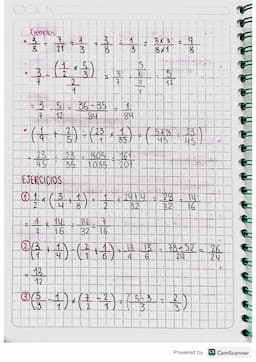 Ejemplos
• 3/3 ÷ 7/21 ÷ 1/3 ÷ 3/8 - 1/3 = 3x3/8x1 = 9/8
• 3/7 - (1/2 x 5/3) / 2/1 = 3/7 - 5/6 / 2/1 - 5/12
= 3/7 - 5/12 = 36-35/84 = 1/84
• (1/4 + 2/5) ÷ (23/1 x 1/35) = (5+8/45 ÷ 23/45)
- 23/45 ÷ 23/35 = 805/1035 = 161/201
EJERCICIOS
① 1/2 x (3/4 + 1/8) = 1/2 x 24+4/32 = 28/32 ÷ 14/16
= 1/2 x 14/16 = 14/32 = 7/16
② (3/1 + 1/4) - (2/1 + 1/6) = 13/4 - 13/6 = 78-52/24 = 26/24
= 13/12
③ (5/3 - 1/1) x (7/1 - 2/1) = (5-3/3 = 2/3)
Powered by CS CamScanner